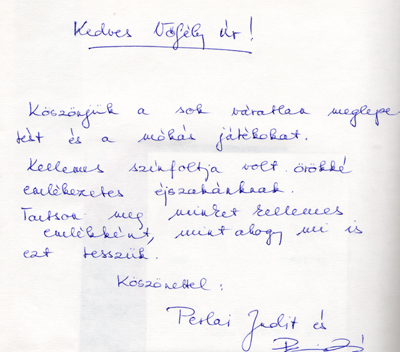 Kedves Vőfély Úr!
Köszönjük a sok váratlan meglepe
tést és a mókás játékokat.
Kellemes színfoltja volt örökké
emlékezetes éjszakánknak.
Tartson meg minket kellemes
emlékként, mint ahogy mi is
ezt tesszük.
Köszönettel:
Perlai Judit és